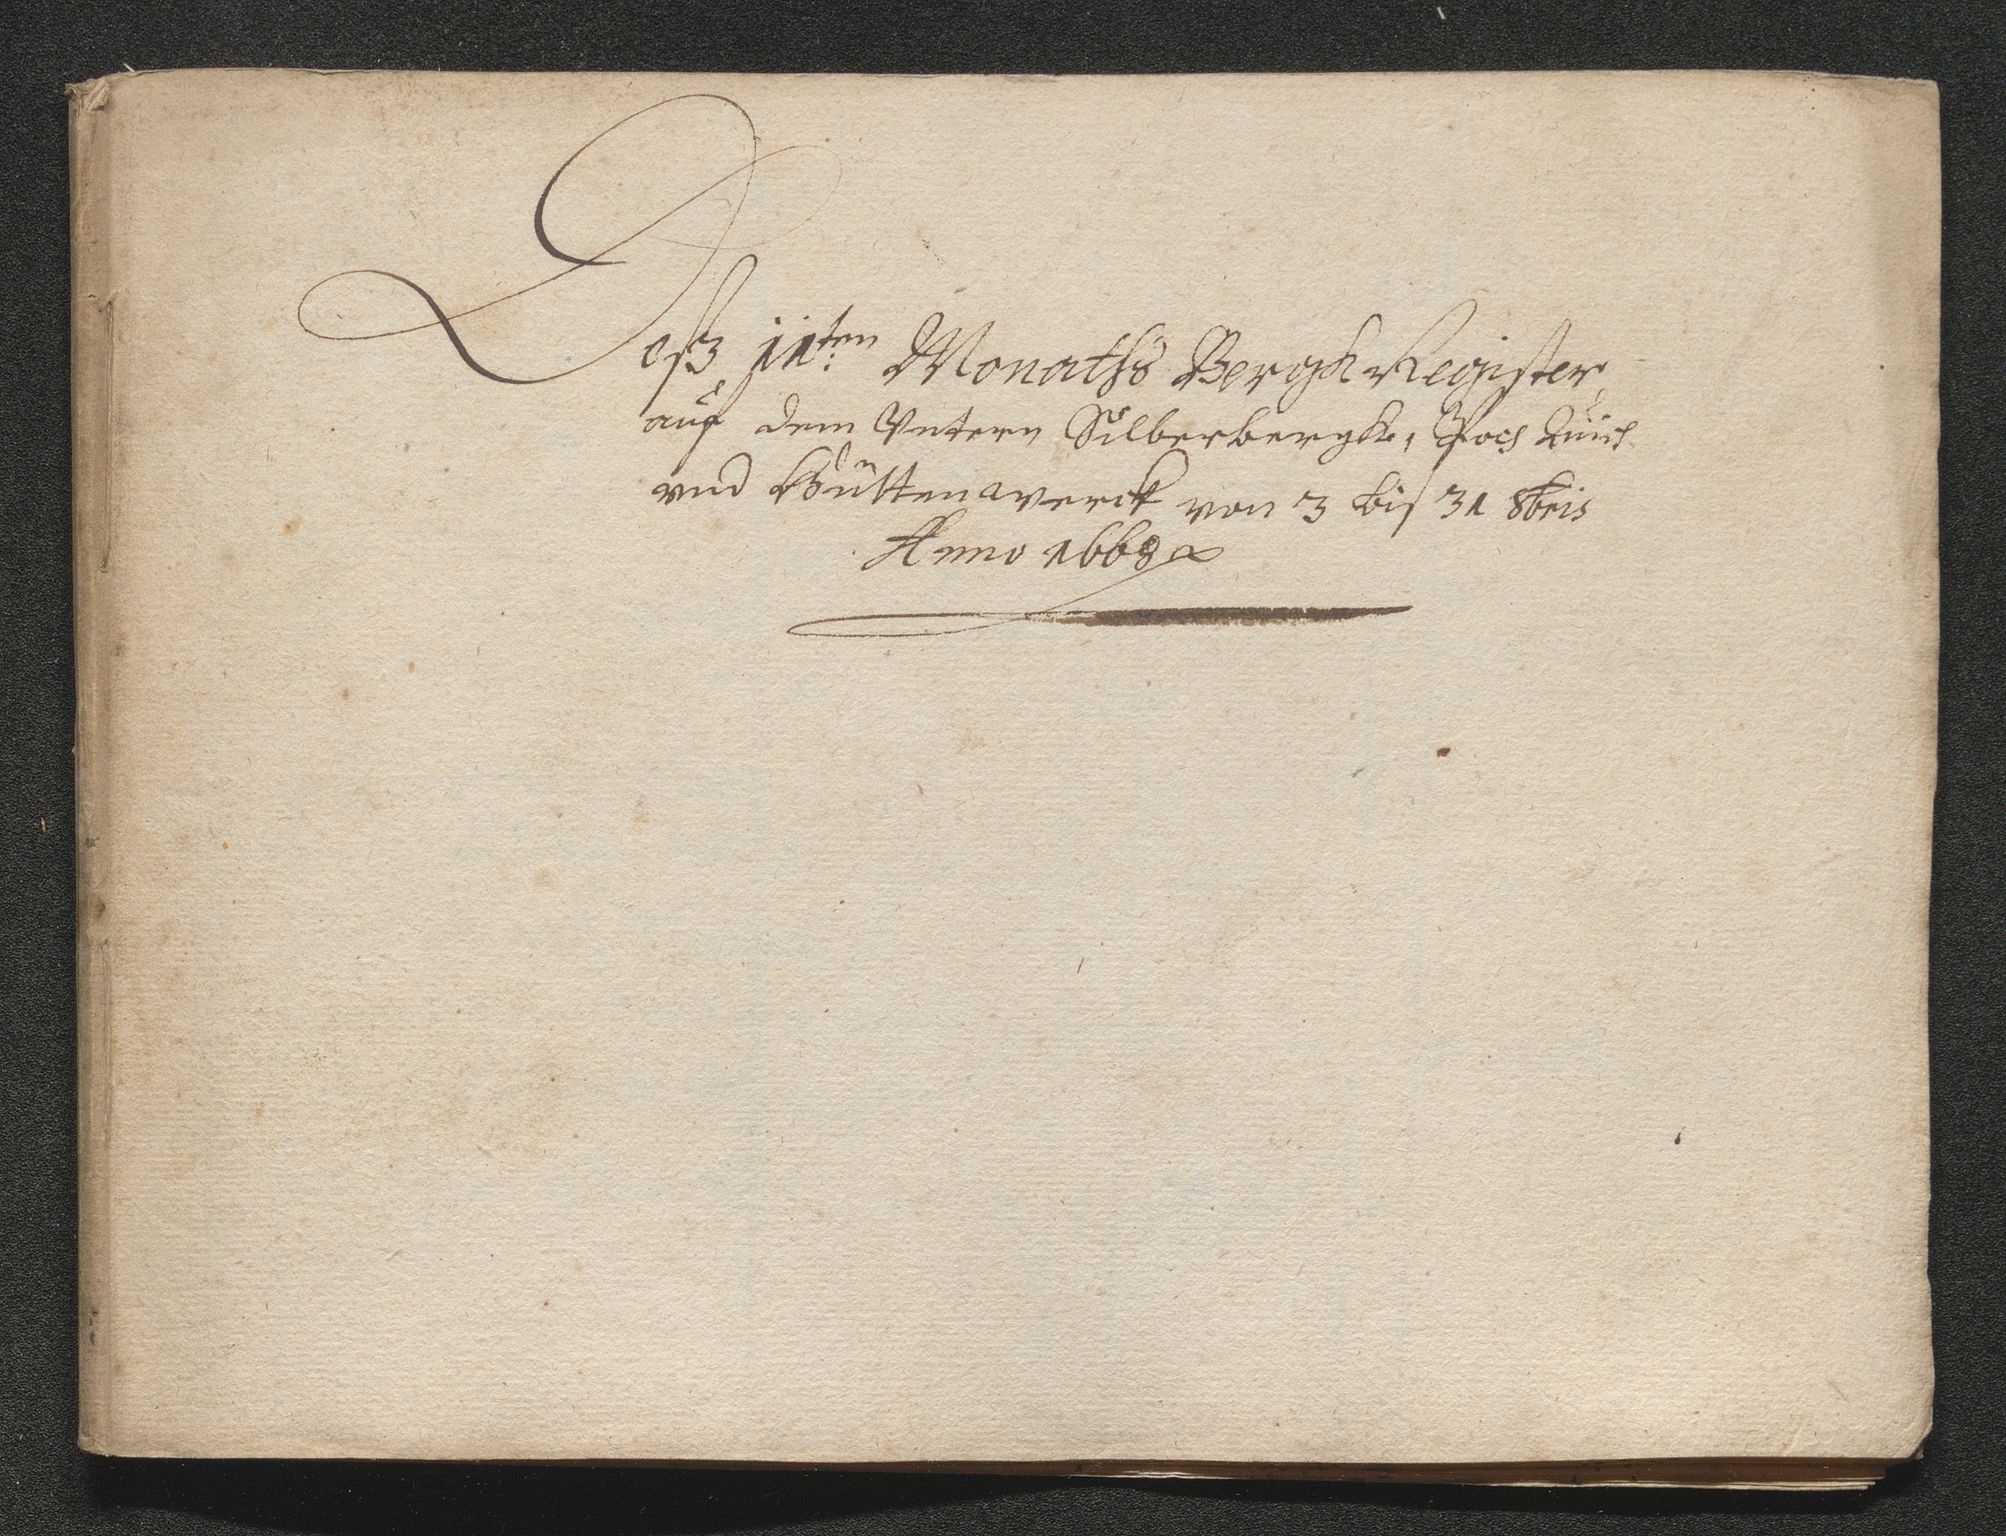 Deß 11ten Monaths Bergk Register,
auf dem Untern Silberbergk, Poch
vnd Hüttenwerck von 3 bis 31 8bris
Anno 1668